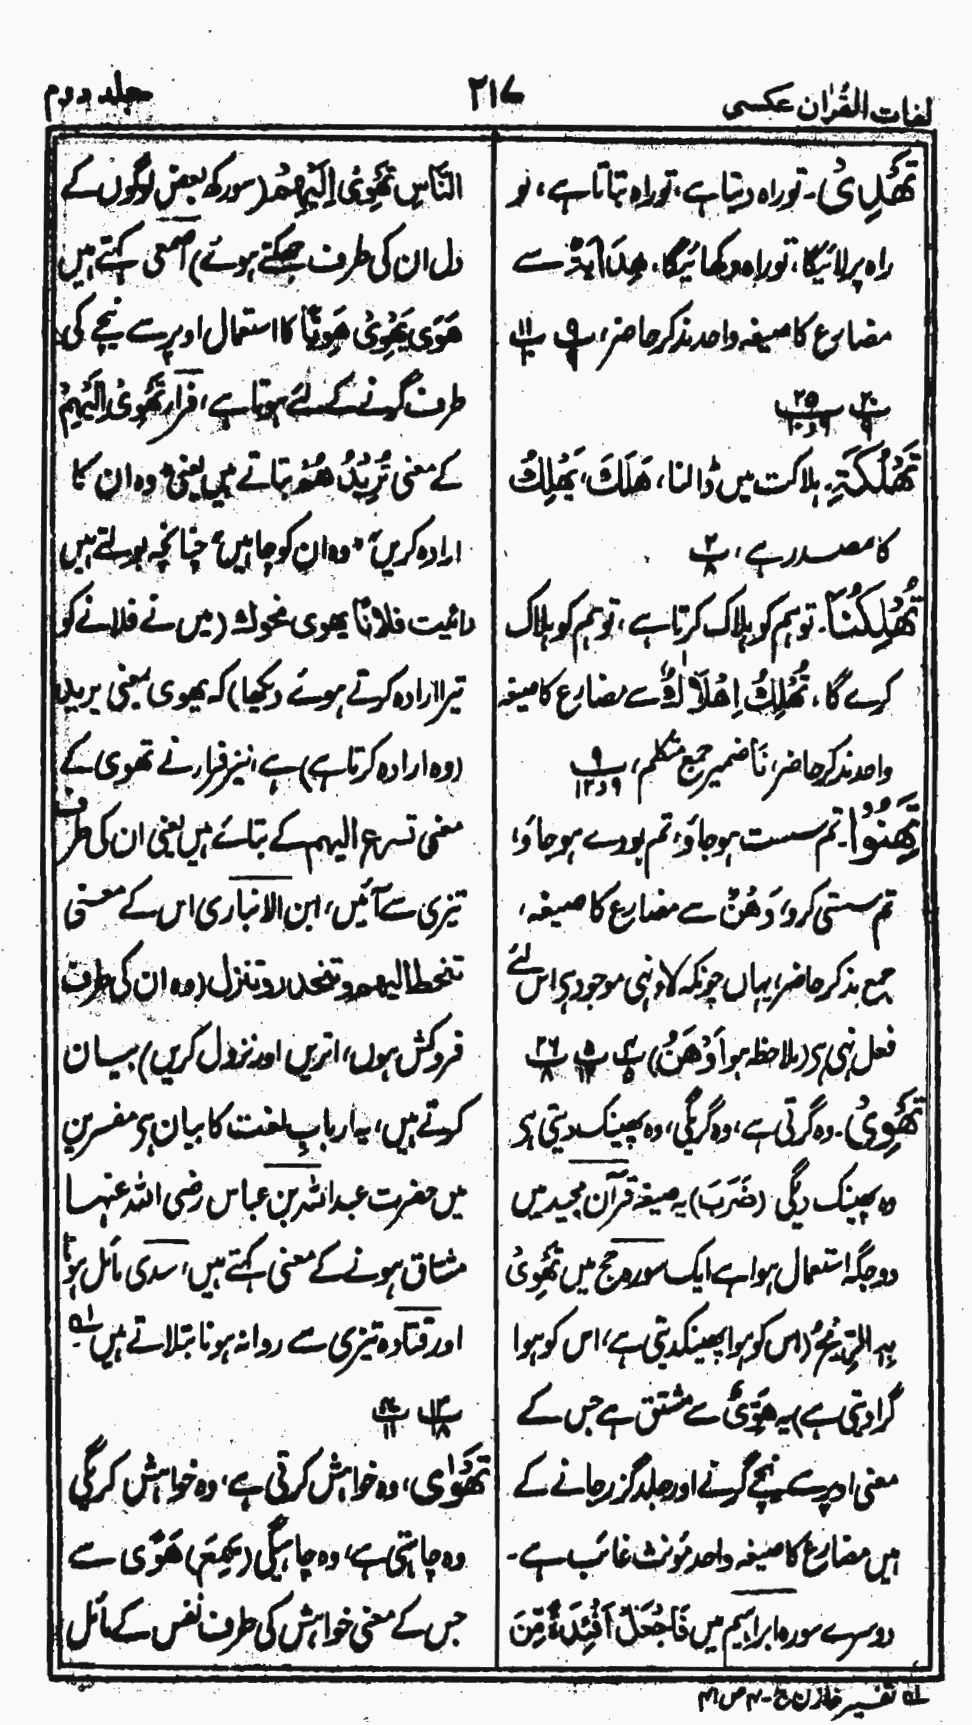 لغات القُرٰان عکسی
۲۱۷
جلد دوم
تَھْدِیْ۔ تو راہ دیتا ہے، تو راہ بتاتا ہے، تو
راہ پر لائیگا، تو راہ دکھائیگا، ھِدَایَۃٌ سے
مضارع کا صیغہ واحد مذکر حاضر، پ۹ پ۱۱
۲۰ ۲۵
تَھْلُکَۃِ۔ ہلاکت میں ڈالنا، ھَلَکَ، یَھْلِکُ
کا مصدر ہے، پ۲ ۸
تُھْلِکُنَا۔ تو ہم کو ہلاک کرتا ہے، تو ہم کو ہلاک
کرے گا، تُھْلِکُ اِھْلَاکٌ سے مضارع کا صیغہ
واحد مذکر حاضر، نَا ضمیر جمع متکلم، پ۹ ۹ و ۱۲
تَھِنُوْا۔ تم سست ہو جاؤ، تم بودے ہو جاؤ،
تم سستی کرو، وَھْنٌ سے مضارع کا صیغہ،
جمع مذکر حاضر، یہاں چونکہ لاء نہی موجود ہے اس لئے
فعل نہی ہے (ملاحظہ ہو اَوْھَنُ) پ۴ ۵ پ۵ ۱۲ پ۲۶ ۸
تَھْوِیْ۔ وہ گرتی ہے، وہ گریگی، وہ پھینک دیتی ہے
وہ پھینک دیگی (ضَرَبَ) یہ صیغہ قرآن مجید میں
دو جگہ استعمال ہوا ہے ایک سورہ حج میں تَھْوِیْ
بِہِ الرِّیْحُ (اس کو ہوا پھینکدیتی ہے، اس کو ہوا
گرا دیتی ہے) یہ ھَوِیٌّ سے مشتق ہے جس کے
معنی اوپر سے نیچے گرنے اور جلد گزر جانے کے
ہیں مضارع کا صیغہ واحد مؤنث غائب ہے۔
دوسرے سورہ ابراہیم میں فَاجْعَلْ اَفْئِدَۃً مِّنَ
النَّاسِ تَھْوِیْ اِلَیْھِمْ (سو رکھ بعض لوگوں کے
دل ان کی طرف جھکتے ہوئے) اصمعی کہتے ہیں
ھَوٰی یَھْوِیْ ھَوِیًّا کا استعمال اوپر سے نیچے کی
طرف گرنے کے لئے ہوتا ہے، فرار تَھْوِیْ اِلَیْھِمْ
کے معنی تُرِیْدُ ھُمْ بتاتے ہیں یعنی "وہ ان کا
ارادہ کریں" "وہ ان کو چاہیں" چنانچہ بولتے ہیں
رائیت فلانًا یھوی نحوک (میں نے فلانے کو
تیرا ارادہ کرتے ہوئے دیکھا) کہ یھوی بمعنی یرید
(وہ ارادہ کرتا ہے) ہے، نیز فرار نے تھوی کے
معنی تسرع الیہم کے بتائے ہیں یعنی ان کی طرف
تیزی سے آئیں، ابن الانباری اس کے معنی
تنحط الیھم وتنحدر وتنزل (وہ ان کی طرف
فروکش ہوں، اتریں اور نزول کریں) بیان
کرتے ہیں، یہ اربابِ لغت کا بیان ہے مفسرین
میں حضرت عبداللہ بن عباس رضی اللہ عنہما
مشتاق ہونے کے معنی کہتے ہیں، سدی مائل ہونا
اور قتادہ تیزی سے روانہ ہونا بتلاتے ہیں ۔ ۱ھ
پ۱۳ ۱۸ پ۱۷ ۱۱
تَھْوٰی، وہ خواہش کرتی ہے، وہ خواہش کریگی
وہ چاہتی ہے، وہ چاہیگی (سَمِعَ) ھَوًی سے
جس کے معنی خواہش کی طرف نفس کے مائل
۱ھ تفسیر خازن ج۔۴ ص ۴۱